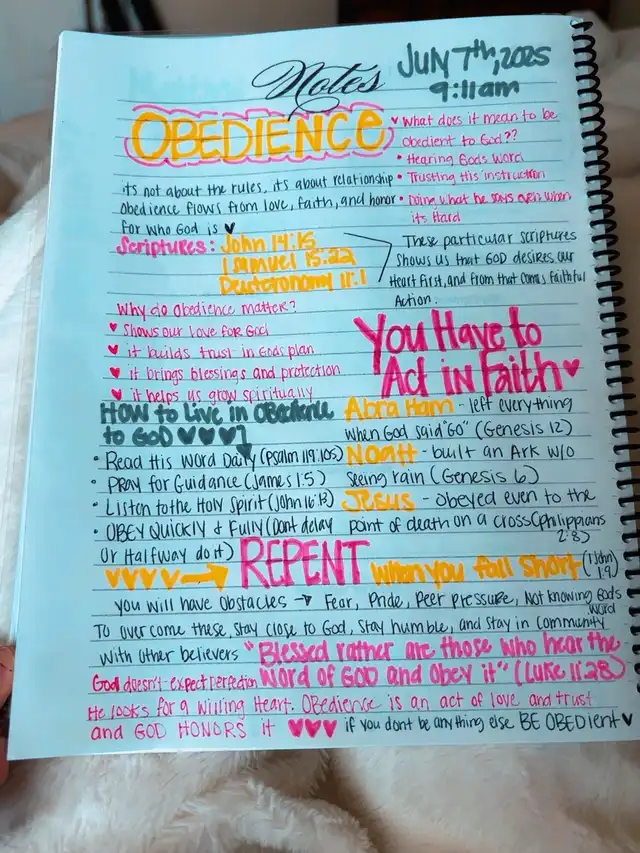 Notes
JULY 7th, 2025
9:11am
OBEDIENCE
♥ What does it mean to be
obedient to God??
• Hearing Gods word
• Trusting His instruction
• Doing what he says even when
its Hard
its not about the rules, its about relationship
obedience flows from love, faith, and honor
for who God is ♥
Scriptures: John 14:15
1 Samuel 15:22
Deuteronomy 11:1
These particular scriptures
shows us that GOD desires our
Heart first, and from that comes faithful
Action.
Why do obedience matter?
♥ Shows our Love for God
♥ it builds trust in Gods plan
♥ it brings blessings and protection
♥ it helps us grow spiritually
You Have to
Act in Faith ♥
HOW to Live in OBedience
to GOD ♥♥♥
• Read His Word Daily (Psalm 119:105)
• PRAY for Guidance (James 1:5)
• Listen to the Holy Spirit (John 16:13)
• OBEY QUICKLY & FUlly (Dont delay
Or Halfway do it)
Abra Ham - left everything
when God said "GO" (Genesis 12)
NOAH - built an Ark w/o
seeing rain (Genesis 6)
Jesus - obeyed even to the
point of death on a cross (Philippians
2:8)
♥♥♥♥→ REPENT when you fall short (1 John
1:9)
you will have obstacles → Fear, Pride, Peer pressure, Not knowing Gods
word
To over come these, stay close to God, stay humble, and stay in community
with other believers "Blessed rather are those who hear the
word of GOD and obey it" (Luke 11:28)
God doesn't expect perfection
He looks for a willing Heart. OBedience is an act of love and trust
and GOD HONORS it ♥♥♥ if you dont be anything else BE OBEDient ♥